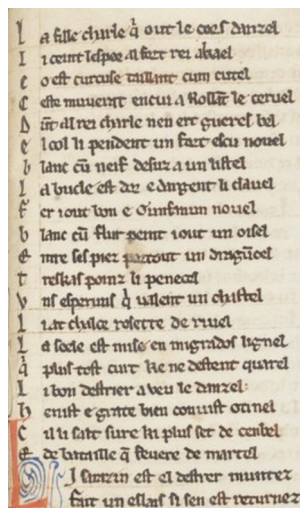 L a fille charle q̃ out le cors danzel
L i ceint lespee al fort rei
C o est curcuse taillant cum cutel
C este muverat encui a Rollãt le cervel
D ũt al rei charle nen ert gueres bel
E l col li pendent un fort escu novel
b lanc cũ neif desuz a un listel
L a bucle est dor e dargent li clavel
F er i out bon e Gunfanun novel
b lanc cũ flur peint i out un oisel
E ntre ses piez portout un dragũcel
t reskas poinz li penecel
V ns esperuns q̃ valent un chastel
L i at chalce rosette de rivel
L a sele est mise en migrados lignel
q̃ plus tost curt ke ne destent quarel
L i bon destrier a veu le danzel
h enist e grate bien conuist otinel
C il li salt sure ki plus set de cenbel
E de bataille q̃ feuere de martel
L i sarazin est el destrer muntez
fait un eslais si sen est returnez